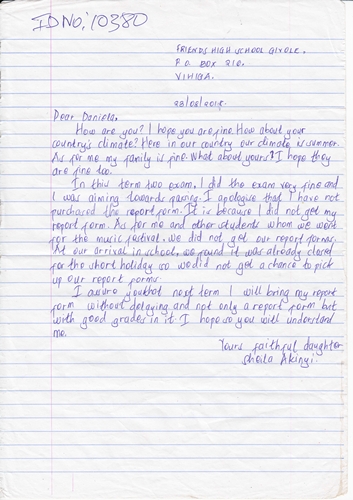 ID No: 10380
FRIENDS HIGH SCHOOL GIVOLE.
P.O BOX 210.
VIHIGA.
23/08/2018.
Dear Daniela,
How are you? I hope you are fine. How about your
country's climate? Here in our country our climate is summer.
As for me my family is fine. What about yours? I hope they
are fine too.
In this term two exam, I did the exam very fine and
I was aiming towards passing. I apologise that I have not
purchased the report form. It is because I did not get my
report form. As for me and other students whom we were
for the music festival, we did not get our report forms.
At our arrival in school, we found it was already closed
for the short holiday so we did not get a chance to pick
up our report forms.
I assure you that next term I will bring my report
form without delaying and not only a report form but
with good grades in it. I hope so you will understand
me.
Yours faithful daughter
Sheila Akinyi.